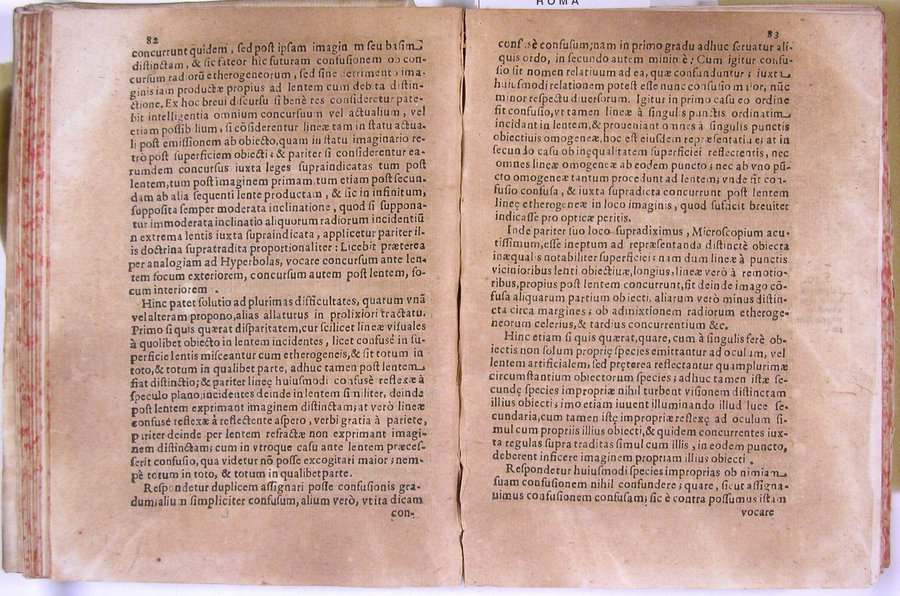 ROMA
82
concurrunt quidem, sed post ipsam imaginem seu basim
distinctam, & sic fateor hic futuram confusionem ob con-
cursum radiorū etherogeneorum, sed sine detrimento ima-
ginis iam productæ propius ad lentem cum debita distin-
ctione. Ex hoc breui discursu si benè res consideretur pate-
bit intelligentia omnium concursuum vel actualium, vel
etiam possibilium, si cōsiderentur lineæ tam in statu actua-
li post emissionem ab obiecto, quam in statu imaginario re-
tro post superficiem obiecti; & pariter si considerentur ea-
rumdem concursus iuxta leges supraindicatas tum post
lentem, tum post imaginem primam, tum etiam post secun-
dam ab alia sequenti lente productam, & sic in infinitum,
supposita semper moderata inclinatione, quod si suppona-
tur immoderata inclinatio aliquorum radiorum incidentiū
in extrema lentis iuxta supraindicata, applicetur pariter il-
lis doctrina supratradita proportionaliter: Licebit præterea
per analogiam ad Hyperbolas, vocare concursum ante len-
tem focum exteriorem, concursum autem post lentem, fo-
cum interiorem.
Hinc patet solutio ad plurimas difficultates, quarum vnā
vel alteram propono, alias allaturus in prolixiori tractatu.
Primo si quis quærat disparitatem, cur scilicet lineæ visuales
à quolibet obiecto in lentem incidentes, licet confusè in su-
perficie lentis misceantur cum etherogeneis, & sit totum in
toto, & totum in qualibet parte, adhuc tamen post lentem
fiat distinctio; & pariter lineę huiusmodi confusè reflexæ à
speculo plano, incidentes deinde in lentem similiter, deinde
post lentem exprimant imaginem distinctam; at verò lineæ
confusè reflexæ à reflectente aspero, verbi gratia à pariete,
pariter deinde per lentem refractæ non exprimant imagi-
nem distinctam; cum in vtroque casu ante lentem præces-
serit confusio, qua videtur nō posse excogitari maior; nem-
pè totum in toto, & totum in qualibet parte.
Respondetur duplicem assignari posse confusionis gra-
dum; alium simpliciter confusum, alium verò, vt ita dicam
con-
83
confusè confusum; nam in primo gradu adhuc seruatur ali-
quis ordo, in secundo autem minimè; Cum igitur confu-
sio sit nomen relatiuum ad ea, quæ confunduntur; iuxta
huiusmodi relationem potest esse nunc confusio maior, nūc
minor respectu diuersorum. Igitur in primo casu eo ordine
fit confusio, vt tamen lineæ à singulis punctis ordinatim
incidant in lentem, & proueniant omnes à singulis punctis
obiectiuis omogeneæ, hoc est eiusdem repræsentatiuæ; at in
secundo casu ob inęqualitatem superficiei reflectentis, nec
omnes lineæ omogeneæ ab eodem puncto; nec ab vno pū-
cto omogeneæ tantum procedunt ad lentem; vnde fit con-
fusio confusa, & iuxta supradicta concurrunt post lentem
lineę etherogeneæ in loco imaginis, quod sufficit breuiter
indicasse pro opticæ peritis.
Inde pariter suo loco supradiximus, Microscopium acu-
tissimum, esse ineptum ad repræsentanda distinctè obiecta
inæqualis notabiliter superficiei; nam dum lineæ à punctis
vicinioribus lenti obiectiuæ, longius, lineæ verò à remotio-
ribus, propius post lentem concurrunt, fit deinde imago cō-
fusa aliquarum partium obiecti, aliarum verò minus distin-
cta circa margines; ob admixtionem radiorum etheroge-
neorum celerius, & tardius concurrentium &c.
Hinc etiam si quis quærat, quare, cum à singulis ferè ob-
iectis non solum proprię species emittantur ad oculum, vel
lentem artificialem, sed pręterea reflectantur quamplurimæ
circumstantium obiectorum species; adhuc tamen istæ se-
cundę species impropriæ nihil turbent visionem distinctam
illius obiecti; imo etiam iuuent illuminando illud luce se-
cundaria, cum tamen istę impropriæ reflexę ad oculum si-
mul cum propriis illius obiecti, & quidem concurrentes iux-
ta regulas supra traditas simul cum illis, in eodem puncto,
deberent inficere imaginem propriam illius obiecti.
Respondetur huiusmodi species improprias ob nimiam
suam confusionem nihil confundere; quare, sicut assigna-
uimus confusionem confusam; sic è contra possumus istam
vocare